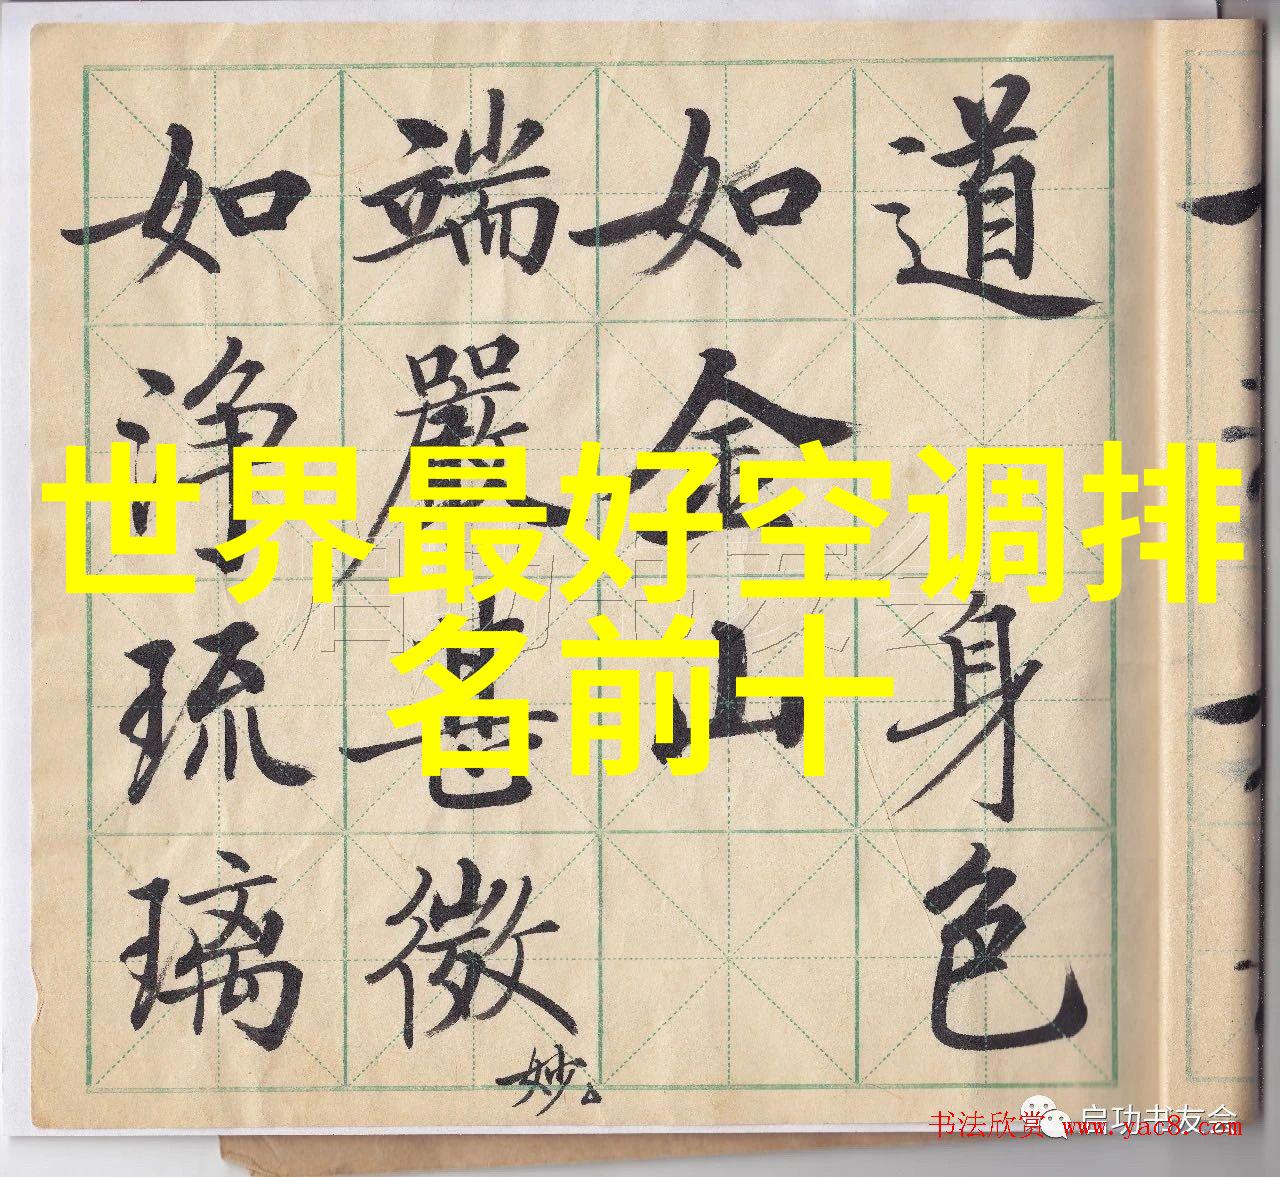 道身色
如金山
端嚴甚微妙
如淨琉璃
世界最好空调排
名前十
启功书友会
书法欣赏 www.yac8.com
启功书友会